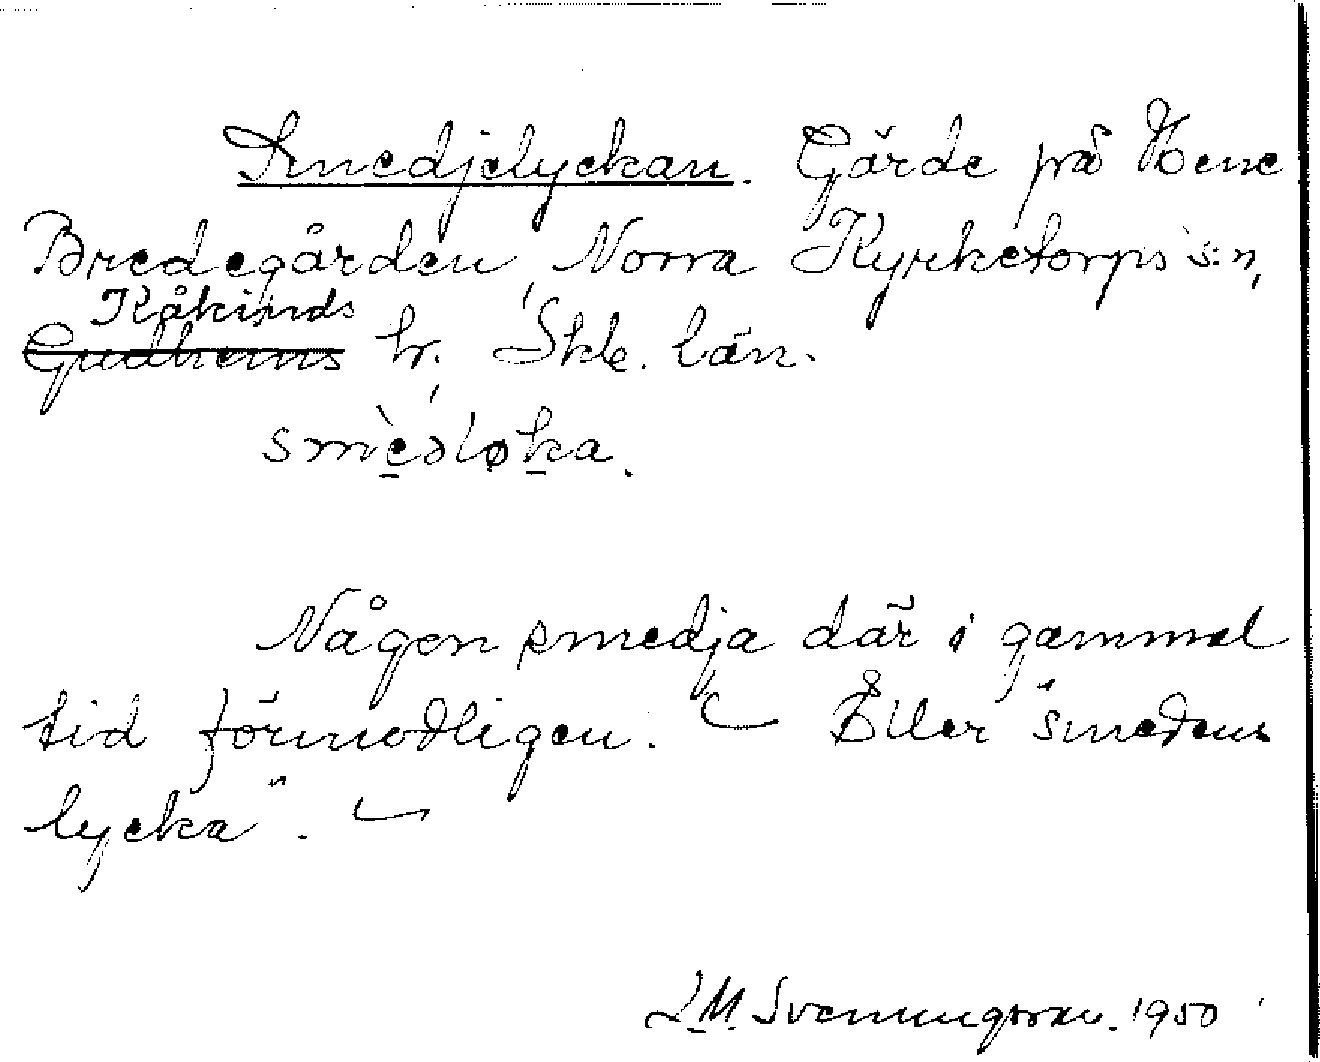 Smedjelyckan. Gärde på Hene
Bredegården, Norra Kyrketorps s:n,
Kåkinds
Gudhems hr. Skb. län.
smèdløka.
Någon smedja där i gammal
tid förmodligen. — Eller "smedens
lycka". —
L.M. Svenungsson. 1950